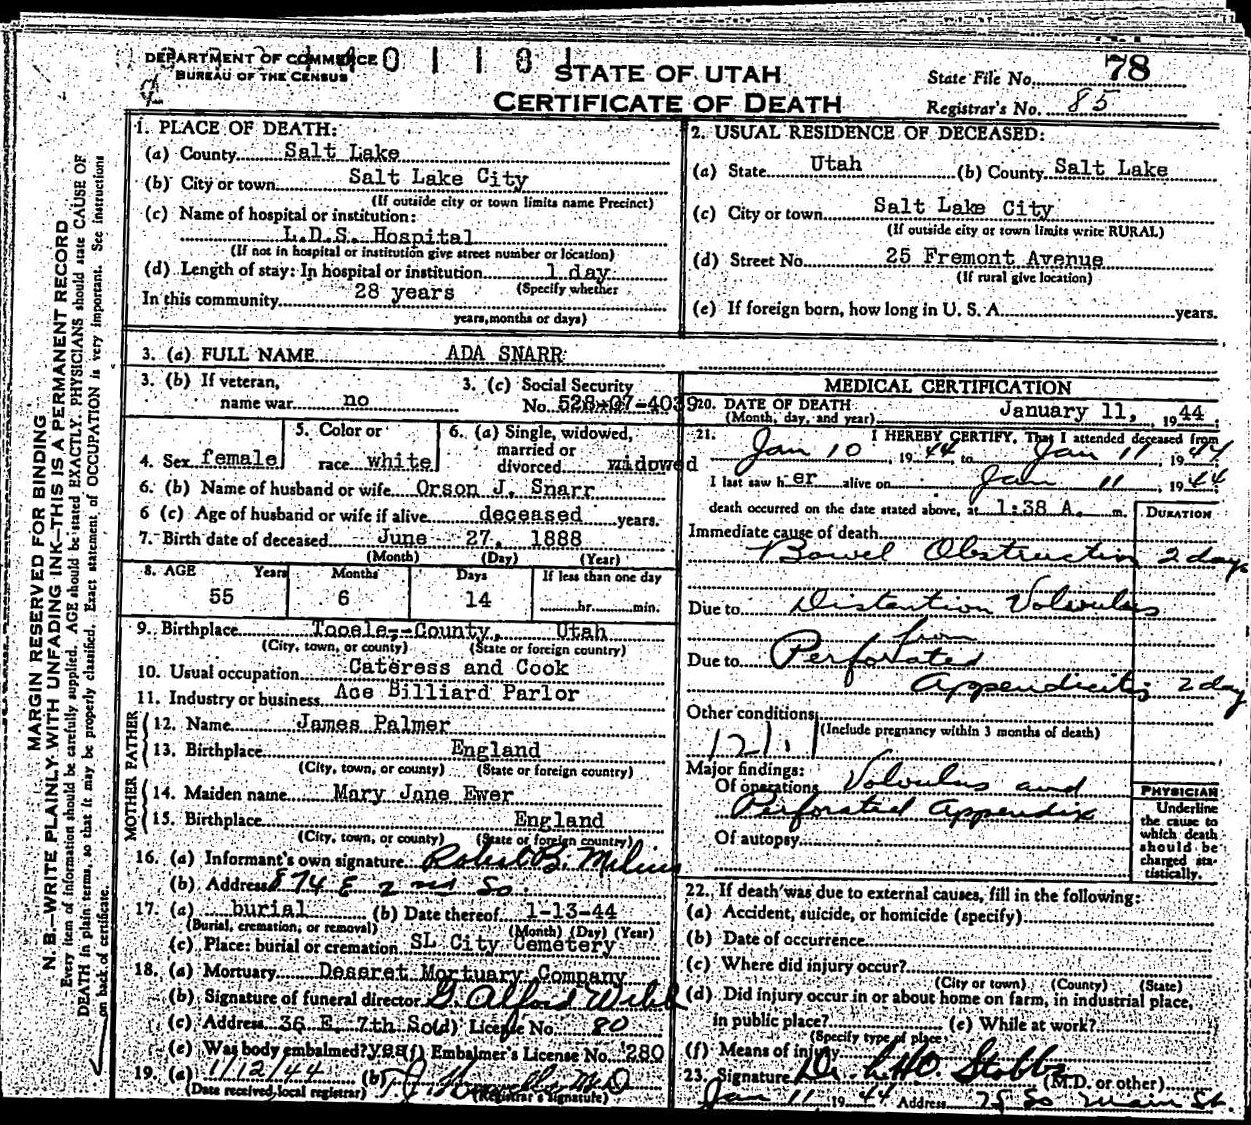 DEPARTMENT OF COMMERCE
BUREAU OF THE CENSUS
STATE OF UTAH
CERTIFICATE OF DEATH
State File No. 78
Registrar's No. 85
MARGIN RESERVED FOR BINDING
N. B.—WRITE PLAINLY WITH UNFADING INK—THIS IS A PERMANENT RECORD
Every item of information should be carefully supplied. AGE should be stated EXACTLY. PHYSICIANS should state CAUSE OF
DEATH in plain terms, so that it may be properly classified. Exact statement of OCCUPATION is very important. See instructions
on back of certificate.
1. PLACE OF DEATH:
(a) County Salt Lake
(b) City or town Salt Lake City
(If outside city or town limits name Precinct)
(c) Name of hospital or institution:
L.D.S. Hospital
(If not in hospital or institution give street number or location)
(d) Length of stay: In hospital or institution 1 day
(Specify whether
In this community 28 years
years, months or days)
2. USUAL RESIDENCE OF DECEASED:
(a) State Utah (b) County Salt Lake
(c) City or town Salt Lake City
(If outside city or town limits write RURAL)
(d) Street No. 25 Fremont Avenue
(If rural give location)
(e) If foreign born, how long in U. S. A. years.
3. (a) FULL NAME ADA SNARR
3. (b) If veteran,
name war no
3. (c) Social Security
No. 528-07-4039
4. Sex female
5. Color or
race white
6. (a) Single, widowed,
married or
divorced widowed
6. (b) Name of husband or wife Orson J. Snarr
6 (c) Age of husband or wife if alive deceased years.
7. Birth date of deceased June 27, 1888
(Month) (Day) (Year)
8. AGE Years Months Days If less than one day
55 6 14 hr. min.
9. Birthplace Tooele County, Utah
(City, town, or county) (State or foreign country)
10. Usual occupation Cateress and Cook
11. Industry or business Ace Billiard Parlor
FATHER
12. Name James Palmer
13. Birthplace England
(City, town, or county) (State or foreign country)
MOTHER
14. Maiden name Mary Jane Ewer
15. Birthplace England
(City, town, or county) (State or foreign country)
16. (a) Informant's own signature Robert B.
(b) Address 874 E 2nd So.
17. (a) burial (b) Date thereof 1-13-44
(Burial, cremation, or removal) (Month) (Day) (Year)
(c) Place: burial or cremation SL City Cemetery
18. (a) Mortuary Deseret Mortuary Company
(b) Signature of funeral director G. Alford Webb
(c) Address 36 E. 7th So (d) License No. 80
(e) Was body embalmed? yes (f) Embalmer's License No. 280
19. (a) 1/12/44 (b) M.D
(Date received local registrar) (Registrar's signature)
MEDICAL CERTIFICATION
20. DATE OF DEATH
(Month, day, and year) January 11, 1944.
21. I HEREBY CERTIFY, That I attended deceased from
Jan 10, 1944 to Jan 11, 1944
I last saw h er alive on Jan 11, 1944
death occurred on the date stated above, at 1:38 A. m.
DURATION
Immediate cause of death
Bowel Obstruction 2 days
Due to Distention Volvulus
from
Due to Perforated
Appendicitis 2 day
Other conditions
(Include pregnancy within 3 months of death)
121.1
Major findings:
Of operations Volvulus and
Perforated Appendix
Of autopsy
PHYSICIAN
Underline
the cause to
which death
should be
charged sta-
tistically.
22. If death was due to external causes, fill in the following:
(a) Accident, suicide, or homicide (specify)
(b) Date of occurrence
(c) Where did injury occur?
(City or town) (County) (State)
(d) Did injury occur in or about home on farm, in industrial place,
in public place? (e) While at work?
(Specify type of place)
(f) Means of injury
23. Signature Dr. Stobbs (M.D. or other)
Jan 11 1944 Address 75 So Main St.